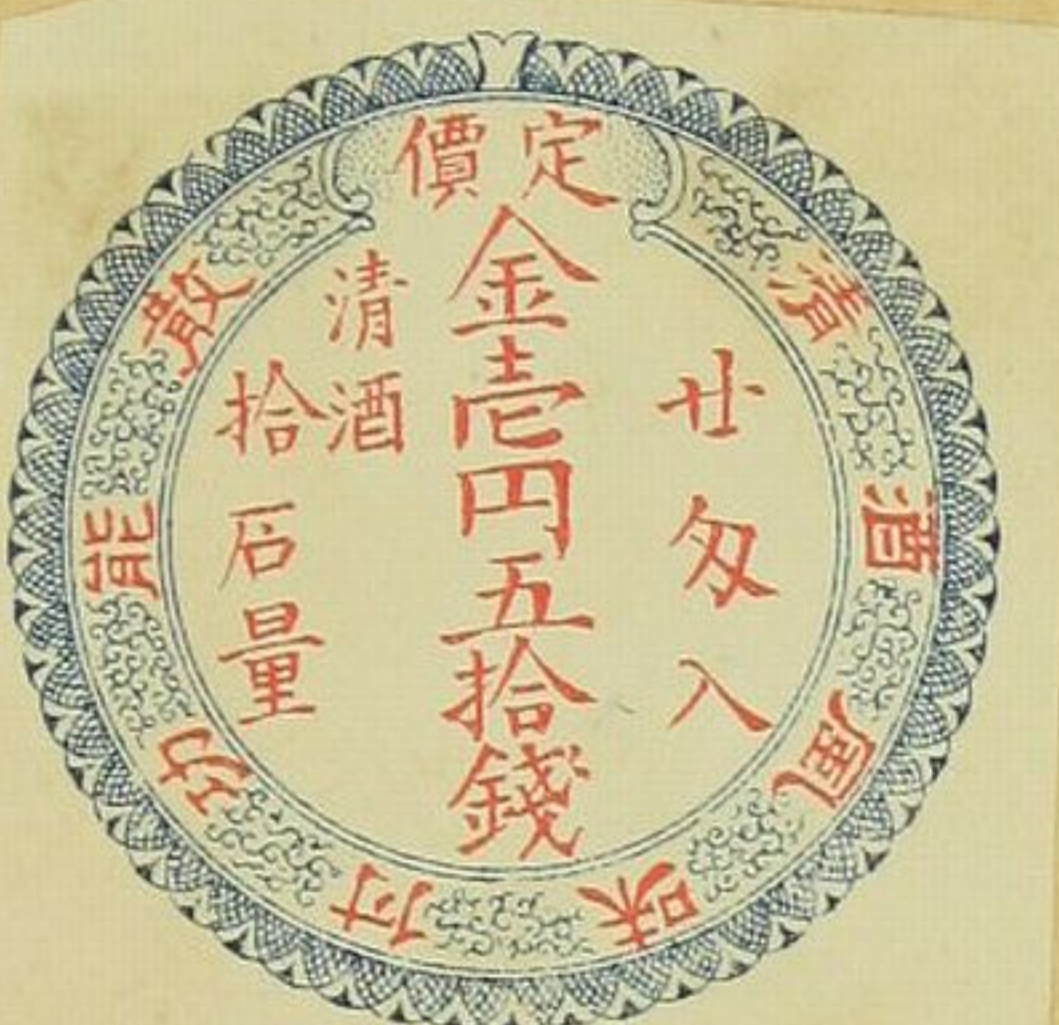 定價
廿匁入
金壱円五拾錢
清酒
拾石量
清酒風味付功能散